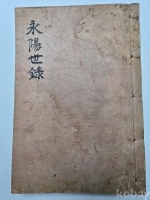 永陽世錄
kobay